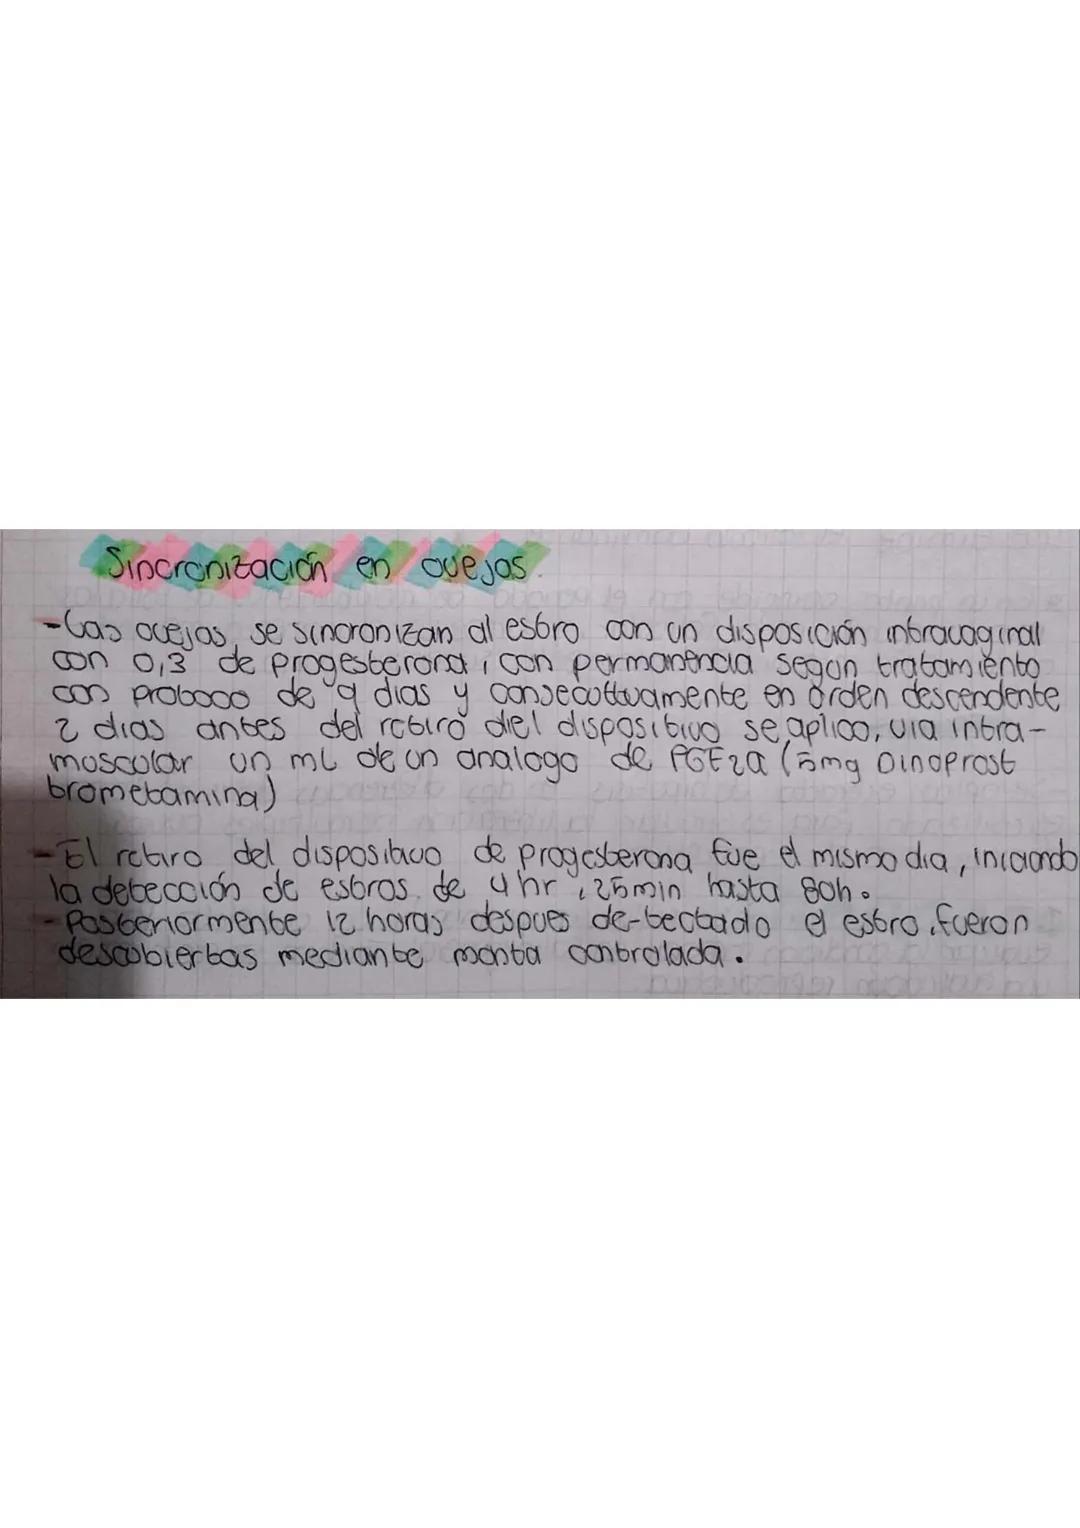 Sincronización en ovejas.
-Las ovejas, se sincronizan al estro con un disposición intravaginal
con 0,3 de progesterona, con permanencia segun tratamiento
con protoco de 9 dias y consecutivamente en orden descendente
2 dias antes del retiro del dispositivo se aplico, via intra-
moscolar un ml de un analogo de PGF2a (5mg Dinoprost
trometamina)
-El retiro del dispositivo de progesterona fue el mismo dia, iniciando
la detección de estros de 4hr, 25min hasta 80h.
-Posteriormente 12 horas despues de-tectado el estro, fueron
descubiertas mediante monta controlada.